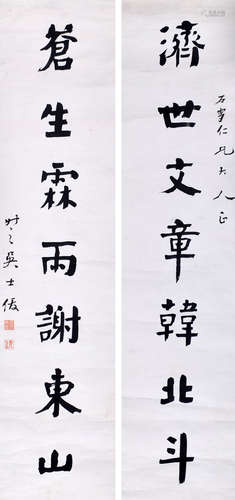 濟世文章韓北斗
石寧仁兄大人正
蒼生霖雨謝東山
吳士俊